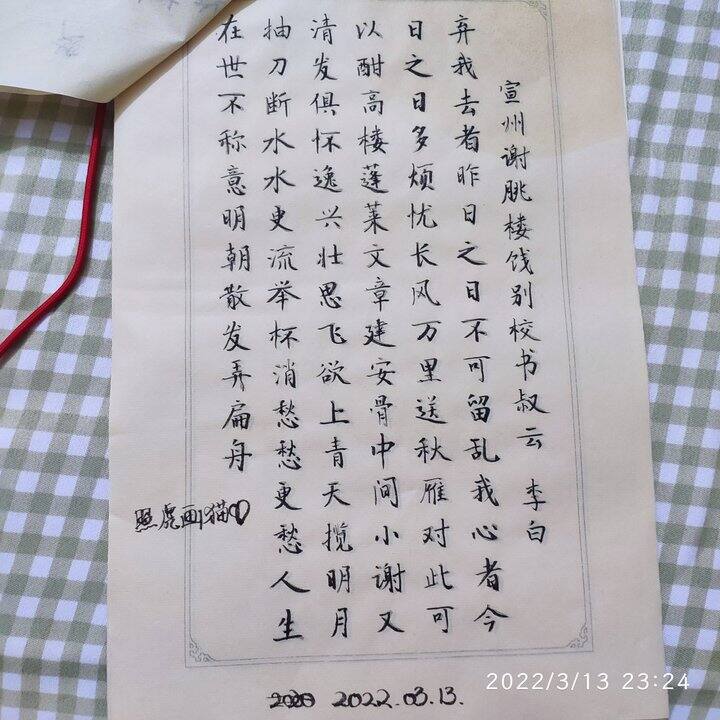 宣州谢朓楼饯别校书叔云 李白
弃我去者昨日之日不可留乱我心者今
日之日多烦忧长风万里送秋雁对此可
以酣高楼蓬莱文章建安骨中间小谢又
清发俱怀逸兴壮思飞欲上青天揽明月
抽刀断水水更流举杯消愁愁更愁人生
在世不称意明朝散发弄扁舟
照虎画猫
2022.03.13.
2022/3/13 23:24